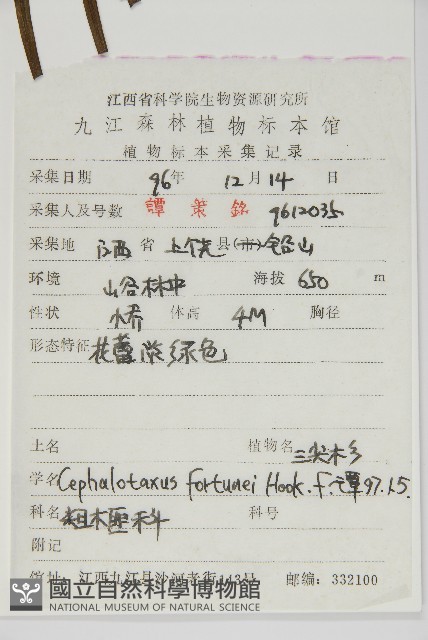 江西省科学院生物资源研究所
九江森林植物标本馆
植物标本采集记录
采集日期 96年 12月14 日
采集人及号数 譚策銘 9612035
采集地 江西 省 上饶 县(市) 铅山
环境 山谷林中 海拔 650 m
性状 小乔 体高 4M 胸径
形态特征 花蕾淡绿色
土名 植物名 三尖杉
学名 Cephalotaxus fortunei Hook.f. 谭97.1.5.
科名 粗榧科 科号
附记
馆址: 江西九江县沙河老街 邮编: 332100
國立自然科學博物館
NATIONAL MUSEUM OF NATURAL SCIENCE